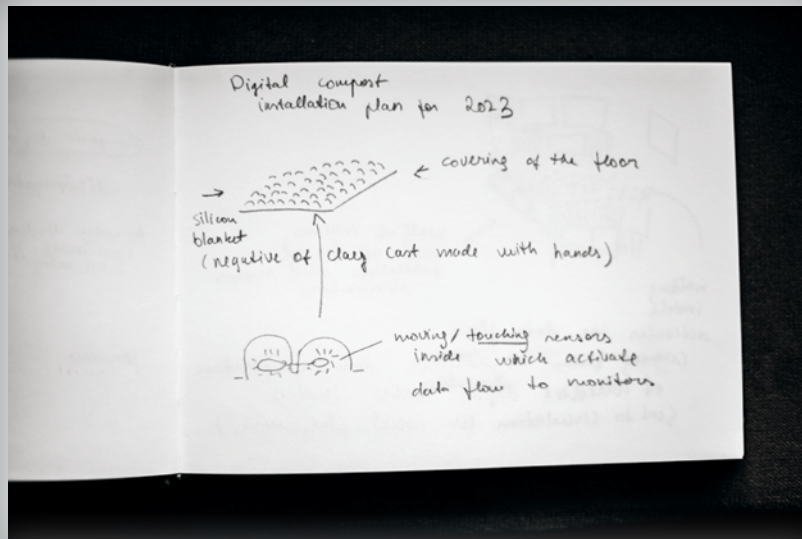 Digital compost
installation plan for 2023
← covering of the floor
→
silicon
blanket
(negative of clay cast made with hands)
moving/touching sensors
inside which activate
data flow to monitors